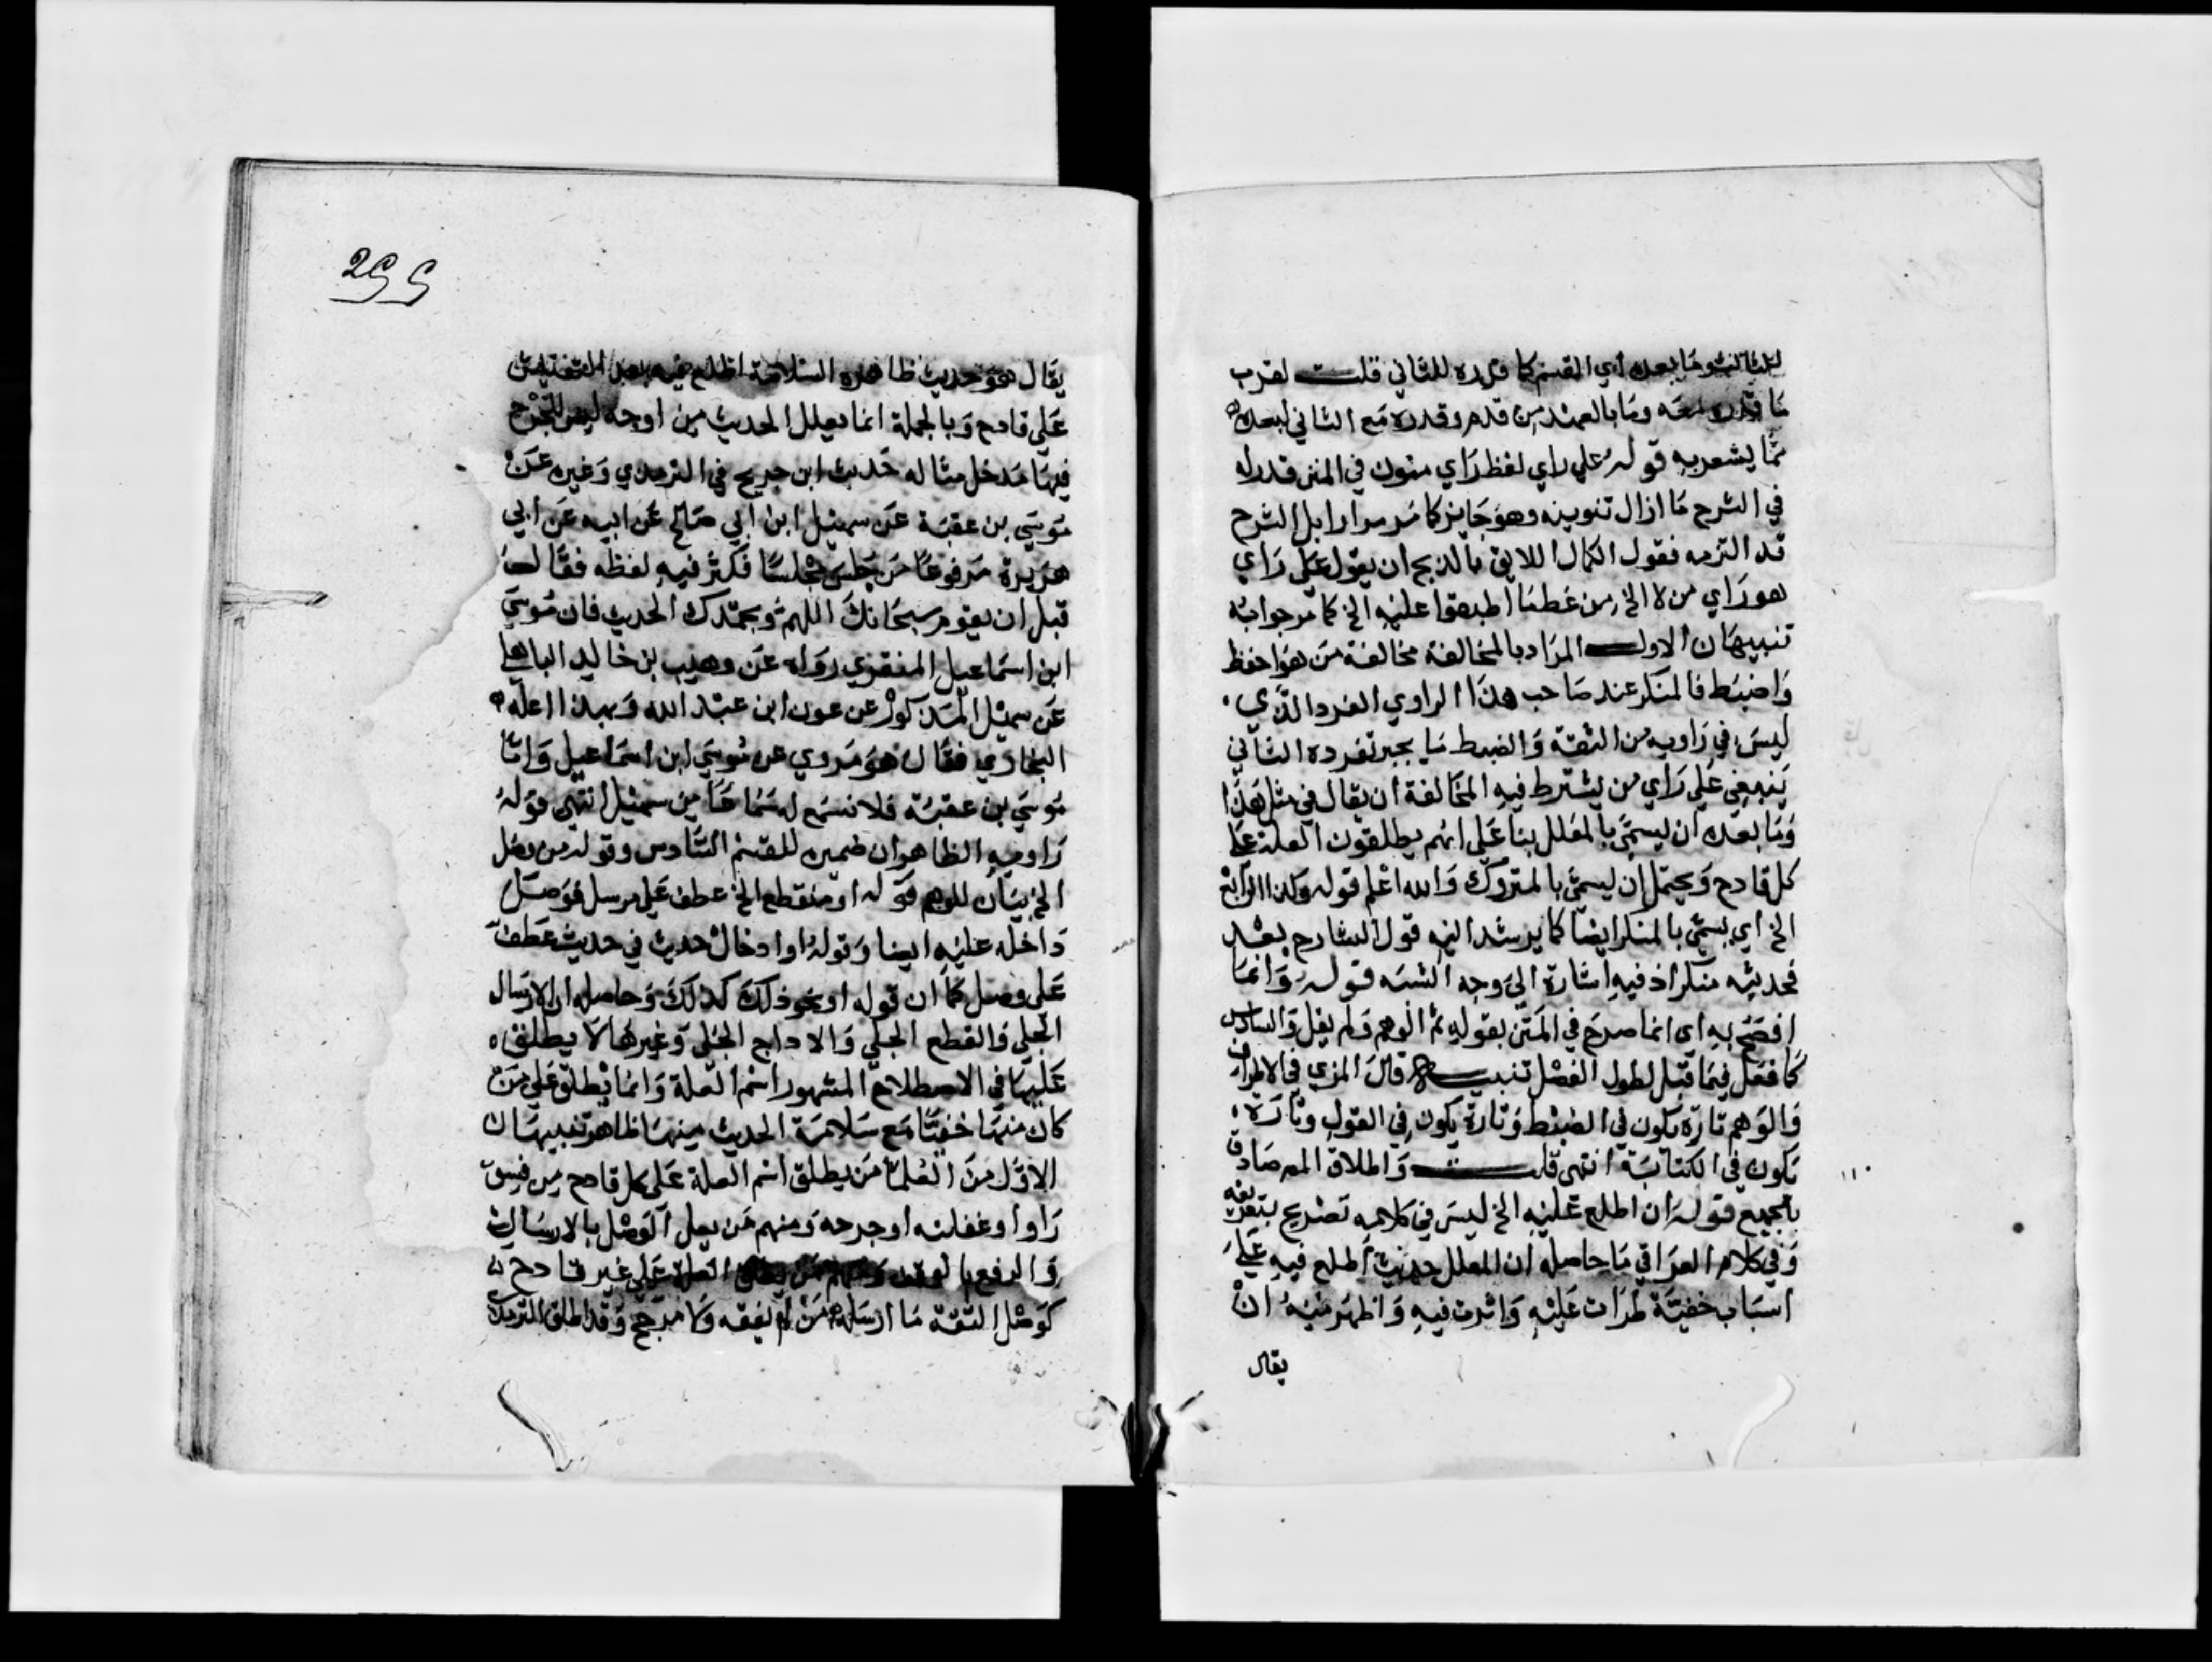 للثالث وما بعده اي القسم كما قدره للثاني قلت لقرب
ما قدره معه وما بالعهد من قدم وقدره مع الثاني لبعده
مما يشعر به قوله علي راي لفظ راي منون في المتن قدر له
في الشرح ما ازال تنوينه وهو جايز كما مر مرارا بل الشرح
قد التزمه فقول الكمال اللايق بالدبج ان يقول علي راي
هو راي من لا الخ من غطنا اطبقوا عليه الخ كما مر جوابه
تنبيهان الاول المراد بالمخالفة مخالفة من هو احفظ
واضبط فالمنكر عند صاحب هذا الراوي الفرد الذي
ليس في راويه من الثقة والضبط ما يجبر تفرده الثاني
ينبغي علي راي من يشترط فيه المخالفة ان يقال في مثل هذا
وما بعده ان يسمي بالمعلل بنا علي انهم يطلقون العلة علي
كل قادح ويحتمل ان يسمي بالمتروك والله اعلم قوله وكذا الرابع
الخ اي يسمي بالمنكر ايضا كما يرشد اليه قول الشارح بعد
فحديثه منكر اذ فيه اشارة الي وجه الشبه قوله وانما
افصح به اي انما صرح في المتن بقوله ثم الوهم ولم يقل والسادس
كما فعل فيما قبل لطول الفصل تنبيه قال المزي في الاطراف
والوهم تارة يكون في الضبط وتارة يكون في القول وتارة
يكون في الكتابة انتهي قلت واطلاق المص صادق
بالجميع قوله ان اطلع عليه الخ ليس في كلامه تصريح بتعريفه
وفي كلام العراقي ما حاصله ان المعلل حديث اطلع فيه علي
اسباب خفية طرات عليه واثرت فيه واظهر منه ان
يقال
255
يقال هو حديث ظاهره السلامة اطلع فيه بعد التفتيش
علي قادح وبالجملة انما يعلل الحديث من اوجه ليس للجرح
فيها مدخل مثاله حديث ابن جريج في الترمدي وغيره عن
موسي بن عقبة عن سهيل ابن ابي صالح عن ابيه عن ابي
هريرة مرفوعا من جلس مجلسا فكثر فيه لغطه فقال
قبل ان يقوم سبحانك اللهم وبحمدك الحديث فان موسي
ابن اسماعيل المنقري رواه عن وهيب بن خالد الباهلي
عن سهيل المذكور عن عون ابن عبد الله وبهذا اعله
البخاري فقال هو مروي عن موسي ابن اسماعيل واما
موسي بن عقبة فلا نسمع له سماعا من سهيل انتهي قوله
راويه الظاهر ان ضميره للقسم السادس وقوله من وصل
الخ بيان للوهم قوله او منقطع الخ عطف علي مرسل فوصل
داخله عليه ايضا وقوله او ادخال حديث في حديث عطف
علي وصل كما ان قوله او نحو ذلك كذلك وحاصله ان الارسال
الجلي والقطع الجلي والادراج الجلي وغيرها لا يطلق
عليها في الاصطلاح المشهور اسم العلة وانما يطلق علي من
كان منها خفيا مع سلامة الحديث منها ظاهر تنبيهان
الاول من العلما من يطلق اسم العلة علي كل قادح من فسق
راو او غفلته او جرحه ومنهم من يعل الوصل بالارسال
والرفع بالوقف ومنهم من يطلق العلة علي غير قادح
كوصل الثقة ما ارسله من لم يفقه ولا مرجح وقد اطلق الترمدي